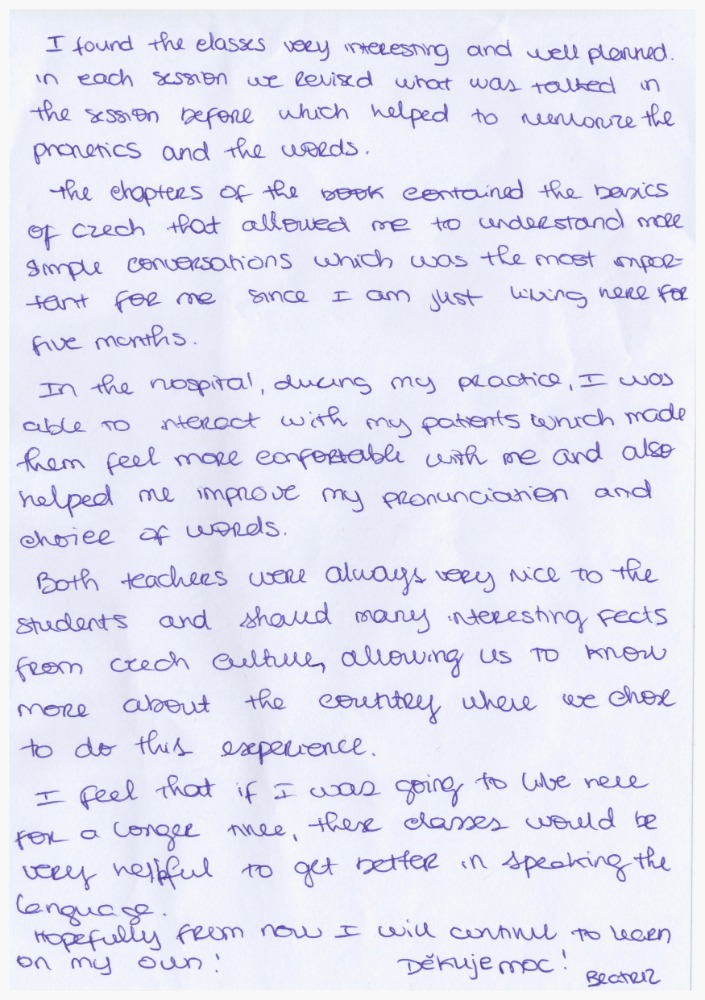 I found the classes very interesting and well planned.
in each session we revised what was talked in
the session before which helped to memorize the
phonetics and the words.
the chapters of the book contained the basics
of czech that allowed me to understand more
simple conversations which was the most impor-
tant for me since I am just living here for
five months.
In the hospital, during my practice, I was
able to interact with my patients which made
them feel more confortable with me and also
helped me improve my pronunciation and
choice of words.
Both teachers were always very nice to the
students and shared many interesting facts
from czech culture, allowing us to know
more about the country where we chose
to do this experience.
I feel that if I was going to live here
for a longer time, these classes would be
very helpful to get better in speaking the
language.
Hopefully from now I will continue to learn
on my own! Děkuje moc!
BEATRIZ